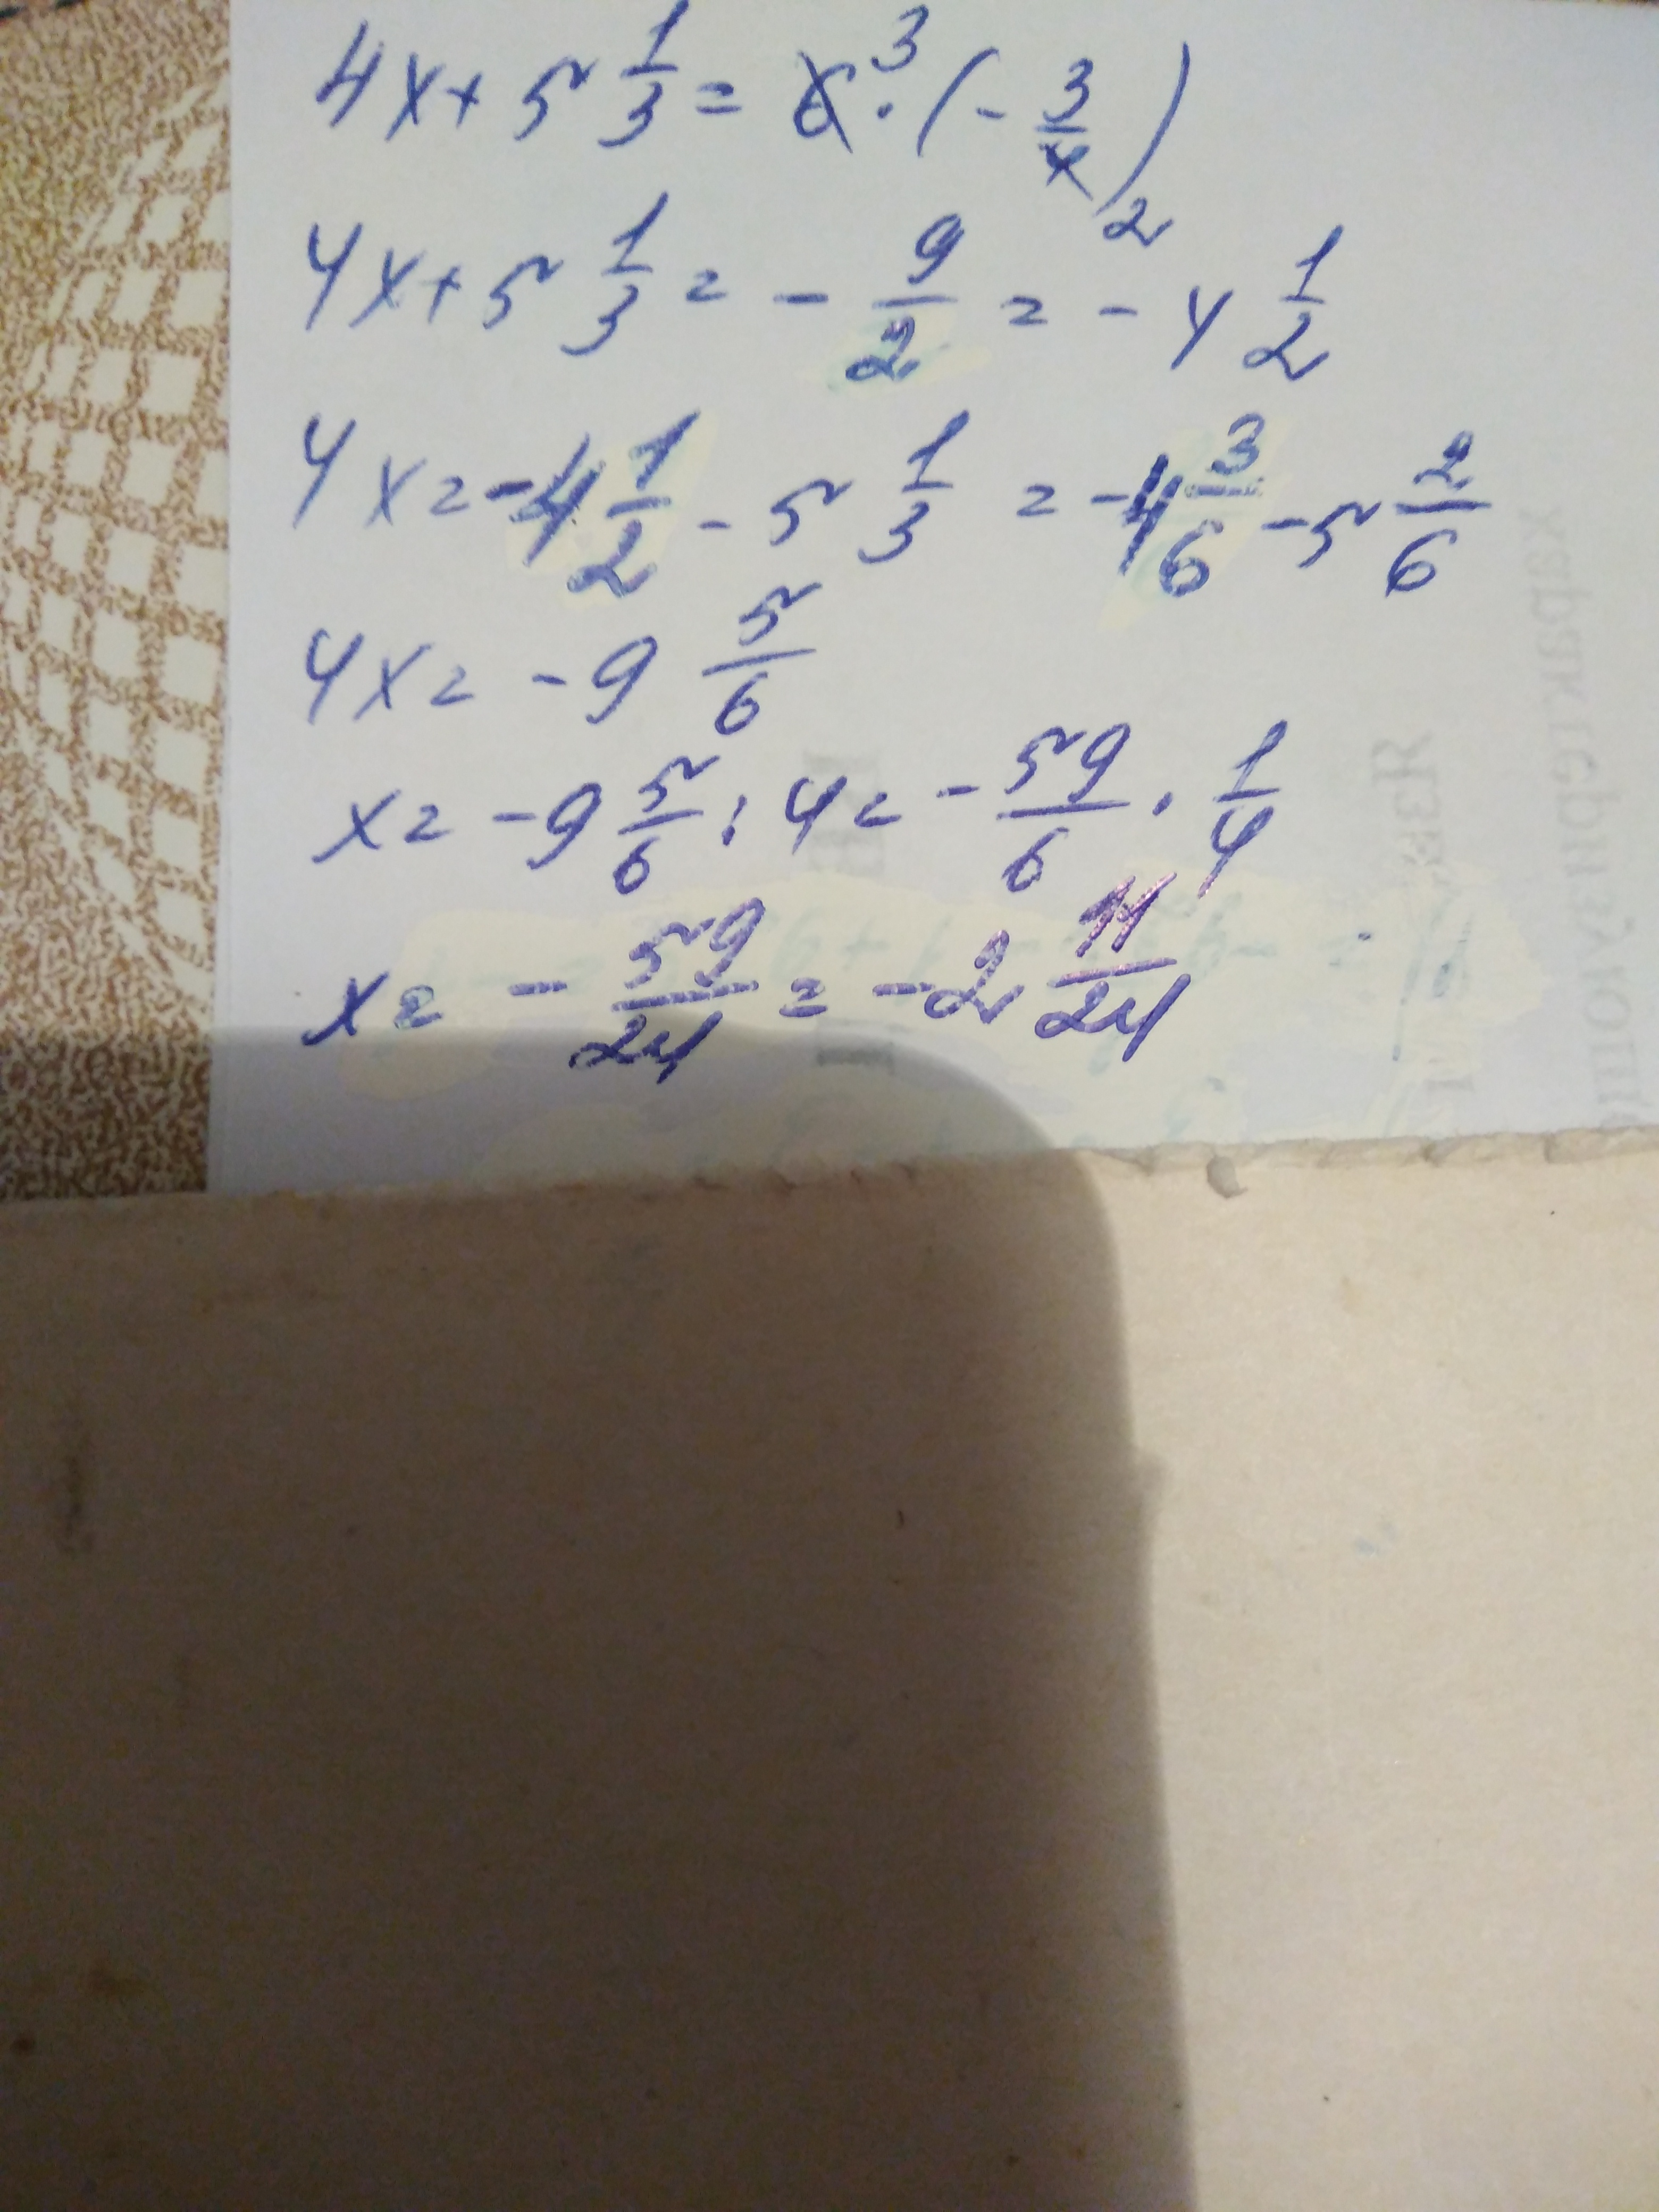 4x + 5 1/3 = 6 3 · (- 3/4) 2
4x + 5 1/3 = - 9/2 = - 4 1/2
4x = - 4 1/2 - 5 1/3 = - 4 3/6 - 5 2/6
4x = - 9 5/6
x = - 9 5/6 : 4 = - 59/6 · 1/4
x = - 59/24 = - 2 11/24